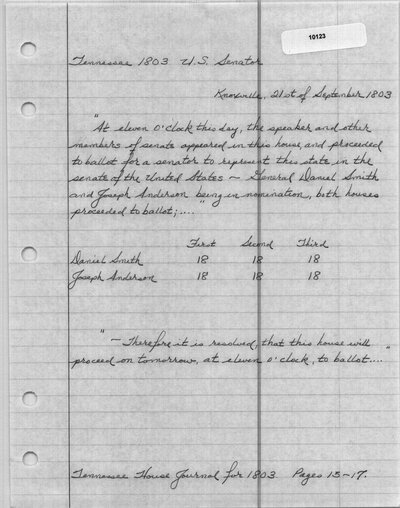 10123
Tennessee 1803 U.S. Senator
Knoxville, 21st of September 1803
"At eleven O'Clock this day, the speaker and other
members of senate appeared in this house, and proceeded
to ballot for a senator to represent this state in the
senate of the United States — General Daniel Smith
and Joseph Anderson being in nomination, both houses
proceeded to ballot; ...."
First Second Third
Daniel Smith 18 18 18
Joseph Anderson 18 18 18
"— Therefore it is resolved, that this house will
proceed on tomorrow, at eleven o'clock, to ballot...."
Tennessee House Journal for 1803 Pages 15-17.